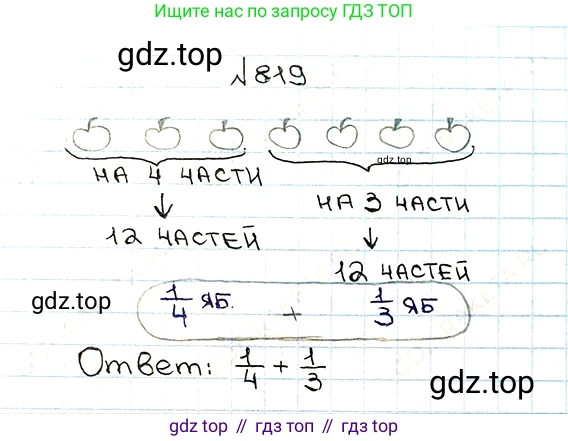 Ищите нас по запросу ГДЗ ТОП
gdz.top
№ 819
gdz.top
на 4 части
на 3 части
12 частей
12 частей
gdz.top
1/4 яб. + 1/3 яб
Ответ: 1/4 + 1/3
gdz.top
gdz.top // гдз топ // гдз.топ